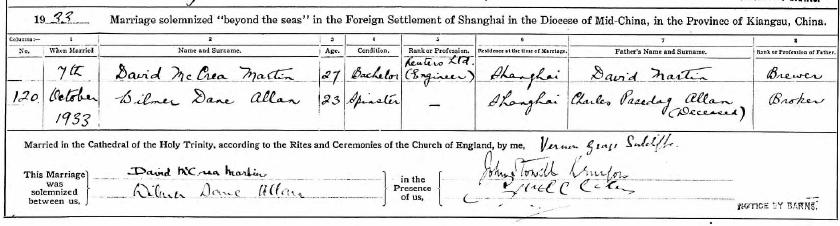 19 33 Marriage solemnized "beyond the seas" in the Foreign Settlement of Shanghai in the Diocese of Mid-China, in the Province of Kiangsu, China.
Columns:— 1 2 3 4 5 6 7 8
No. When Married Name and Surname. Age. Condition. Rank or Profession. Residence at the time of Marriage. Father's Name and Surname. Rank or Profession of Father.
Reuters Ltd.
7th David McCrea Martin 27 Bachelor (Engineer) Shanghai David Martin Brewer
120 October Wilmer Dane Allan 23 Spinster — Shanghai Charles Pasedag Allan Broker
1933 (Deceased)
Married in the Cathedral of the Holy Trinity, according to the Rites and Ceremonies of the Church of England, by me, Vernon George Sutcliffe.
This Marriage was solemnized between us, David McCrea Martin in the Presence of us, John Towill
Wilmer Dane Allan
NOTICE BY BANNS.